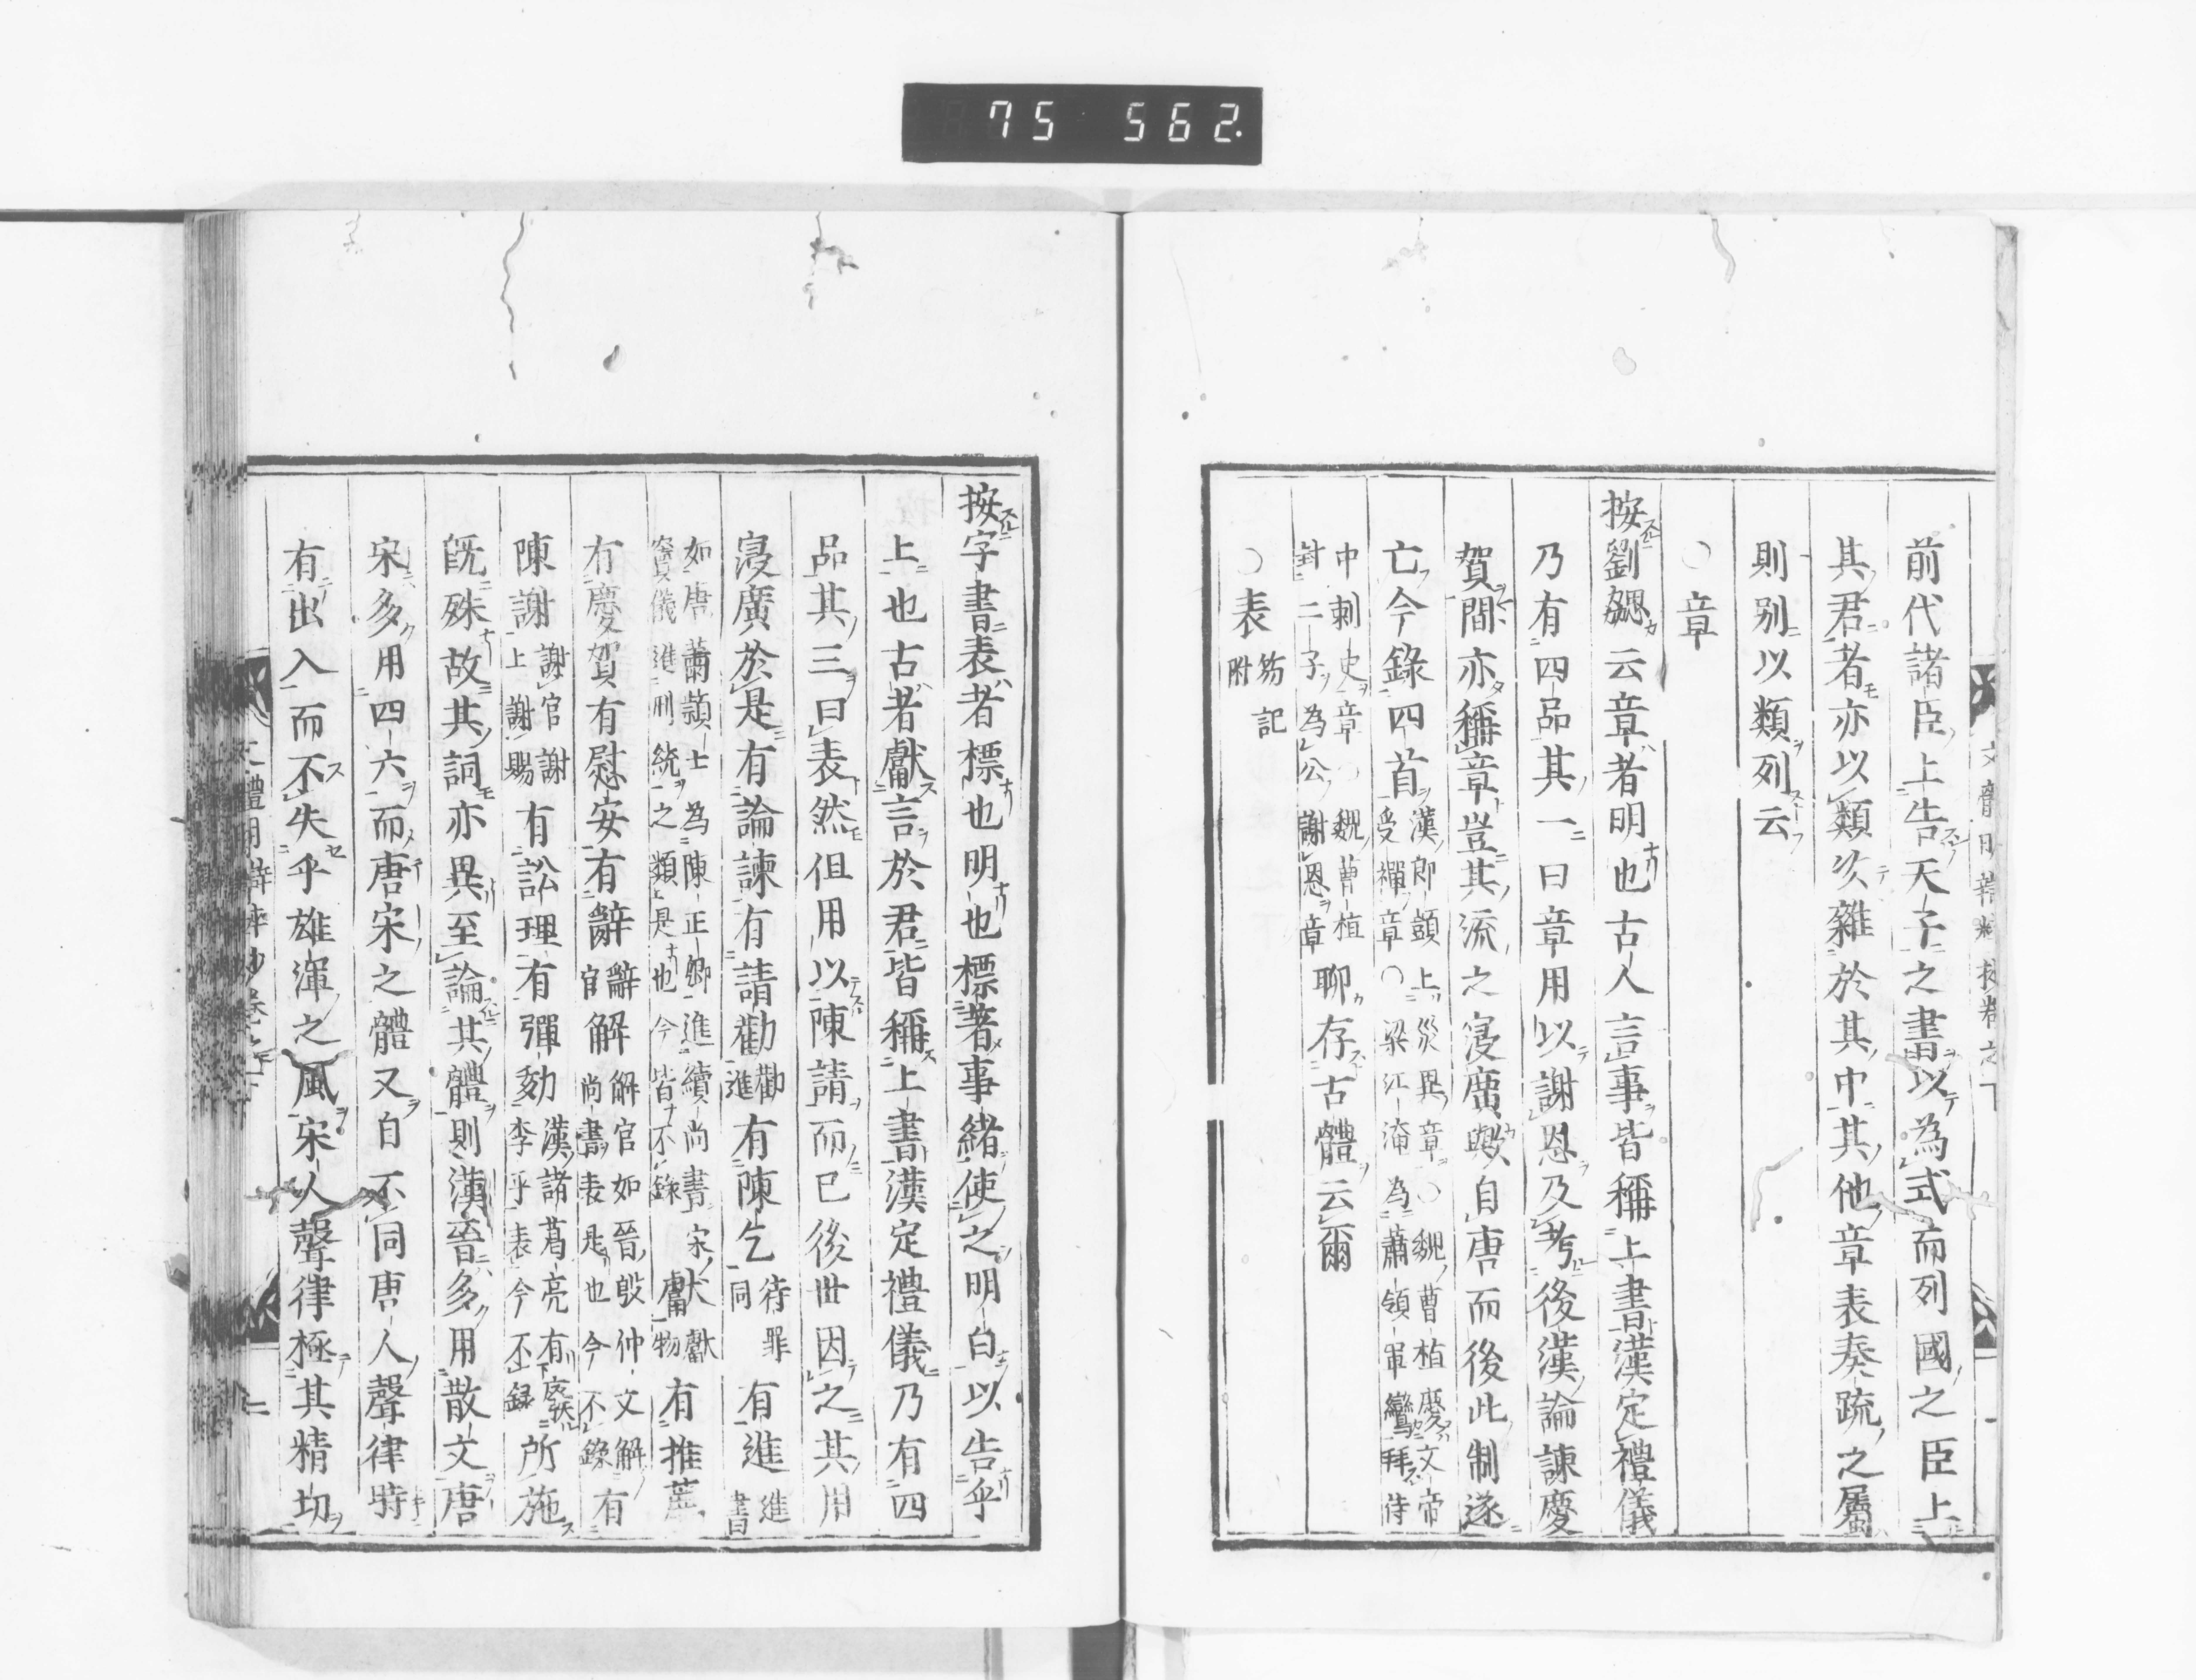 75 562.
前代諸臣上告天子之書以為式而列國之臣上
其君者亦以類次雜於其中其他章表奏疏之屬
則別以類列云
○章
按劉勰云章者明也古人言事皆稱上書漢定禮儀
乃有四品其一曰章用以謝恩及考後漢論諫慶
賀間亦稱章豈其流之寖廣歟自唐而後此制遂
亡今錄四首漢郎顗上災異章○魏曹植慶文帝
受禪章○梁江淹為蕭領軍讓拜侍
中刺史章○魏曹植
封二子為公謝恩章聊存古體云爾
○表笏記
附
按字書表者標也明也標著事緒使之明白以告乎
上也古者獻言於君皆稱上書漢定禮儀乃有四
品其三曰表然但用以陳請而已後世因之其用
寖廣於是有論諫有請勸勸
進有陳乞待罪
同有進進
書
如唐蕭穎士為陳正卿進續尚書宋
竇儀進刑統之類是也今皆不錄獻獻
物有推薦
有慶賀有慰安有辭辭
官解解官如晉殷仲文解
尚書表是也今不錄有
陳謝謝官謝
上謝賜有訟理有彈劾漢諸葛亮有廢
李平表今不錄所施
既殊故其詞亦異至論其體則漢晉多用散文唐
宋多用四六而唐宋之體又自不同唐人聲律時
有出入而不失乎雄渾之風宋人聲律極其精切